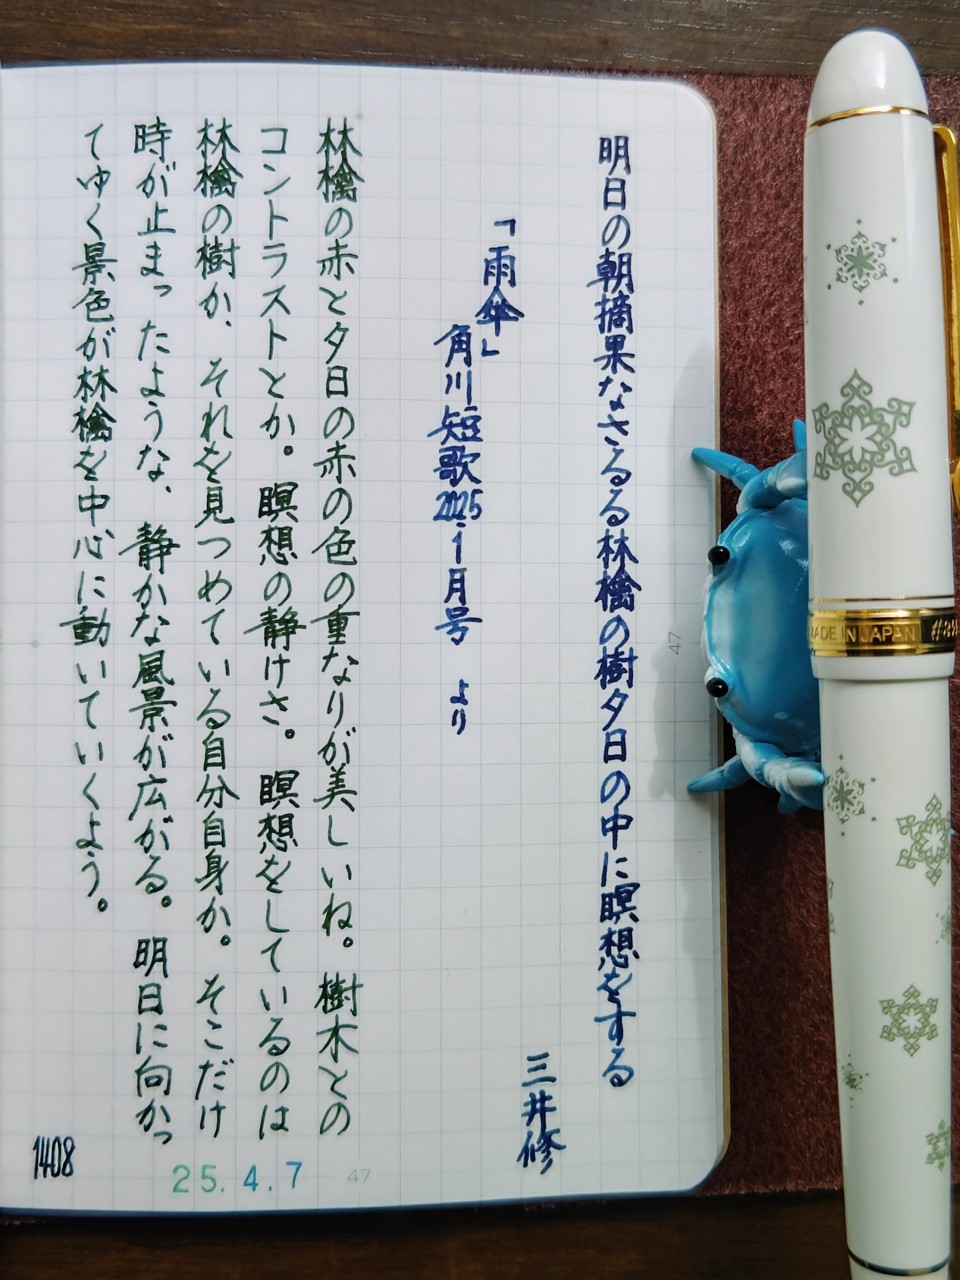 明日の朝摘果なさるる林檎の樹夕日の中に瞑想をする
三井修
「雨傘」
角川短歌2025.1月号 より
林檎の赤と夕日の赤の色の重なりが美しいね。樹木との
コントラストとか。瞑想の静けさ。瞑想をしているのは
林檎の樹か、それを見つめている自分自身か。そこだけ
時が止まったような、静かな風景が広がる。明日に向かっ
てゆく景色が林檎を中心に動いていくよう。
1408
25.4.7
47
47
MADE IN JAPAN